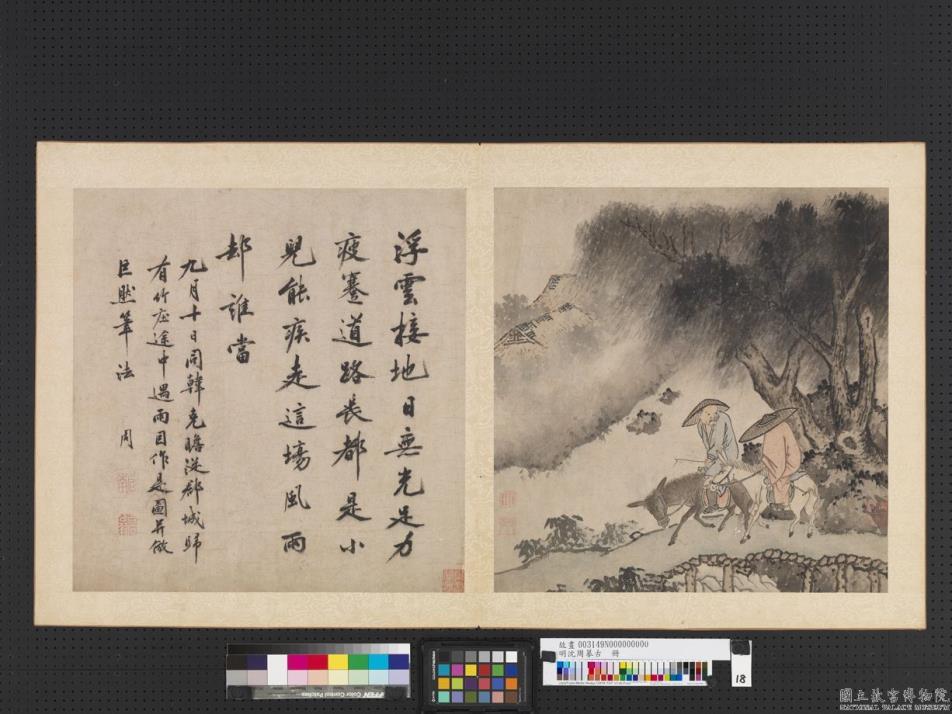 浮雲接地日無光足力
疲蹇道路長都是小
兒能疾走這場風雨
却誰當
九月十日同韓克瞻從郡城歸
有竹庄途中遇雨因作是圖并倣
巨然筆法 周
故畫003149N000000000
明沈周摹古 冊
18
國立故宮博物院
NATIONAL PALACE MUSEUM